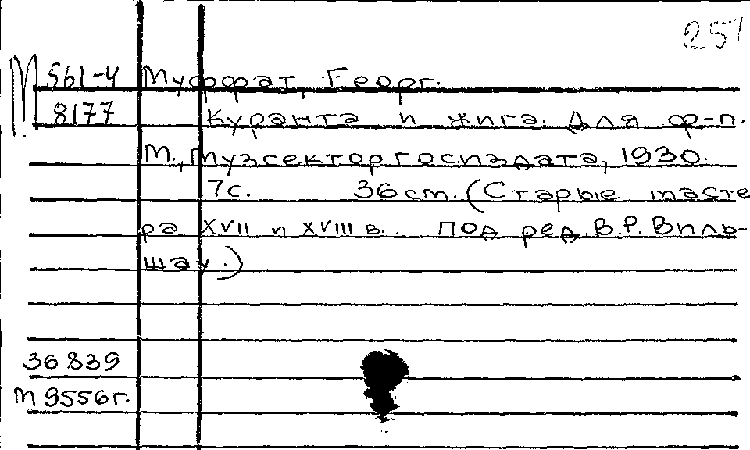 257
М 561-4 Муффат, Георг.
8177 Куранта и жига. Для ф-п.
М., Музсектор Госиздата, 1930.
7с. 36 cm. (Старые масте
ра XVII и XVIII в. Под ред. В.Р. Виль-
шау.)
36839
М 9556г.